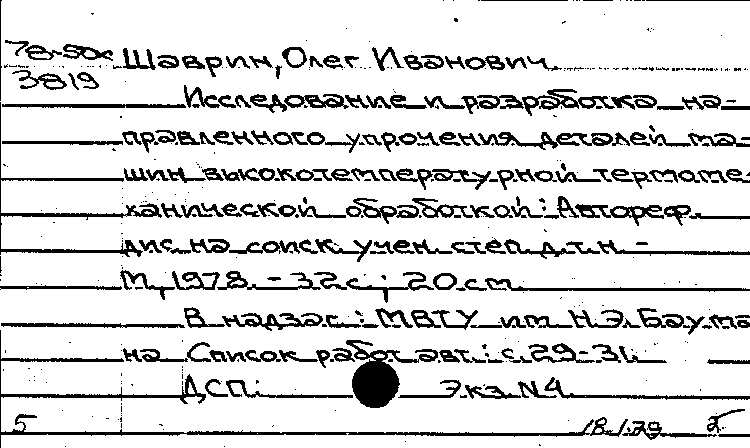 78-50к Шаврин, Олег Иванович.
3819
Исследование и разработка на-
правленного упрочения деталей ма-
шин высокотемпературной термоме-
ханической обработкой: Автореф.
дис. на соиск. учен. степ. д.т.н. -
М., 1978. - 32 с.; 20 см.
В надзаг.: МВТУ им Н.Э. Баума
на Список работ авт.: с. 29-31.
ДСП: Экз. N 4.
5 18.1.79